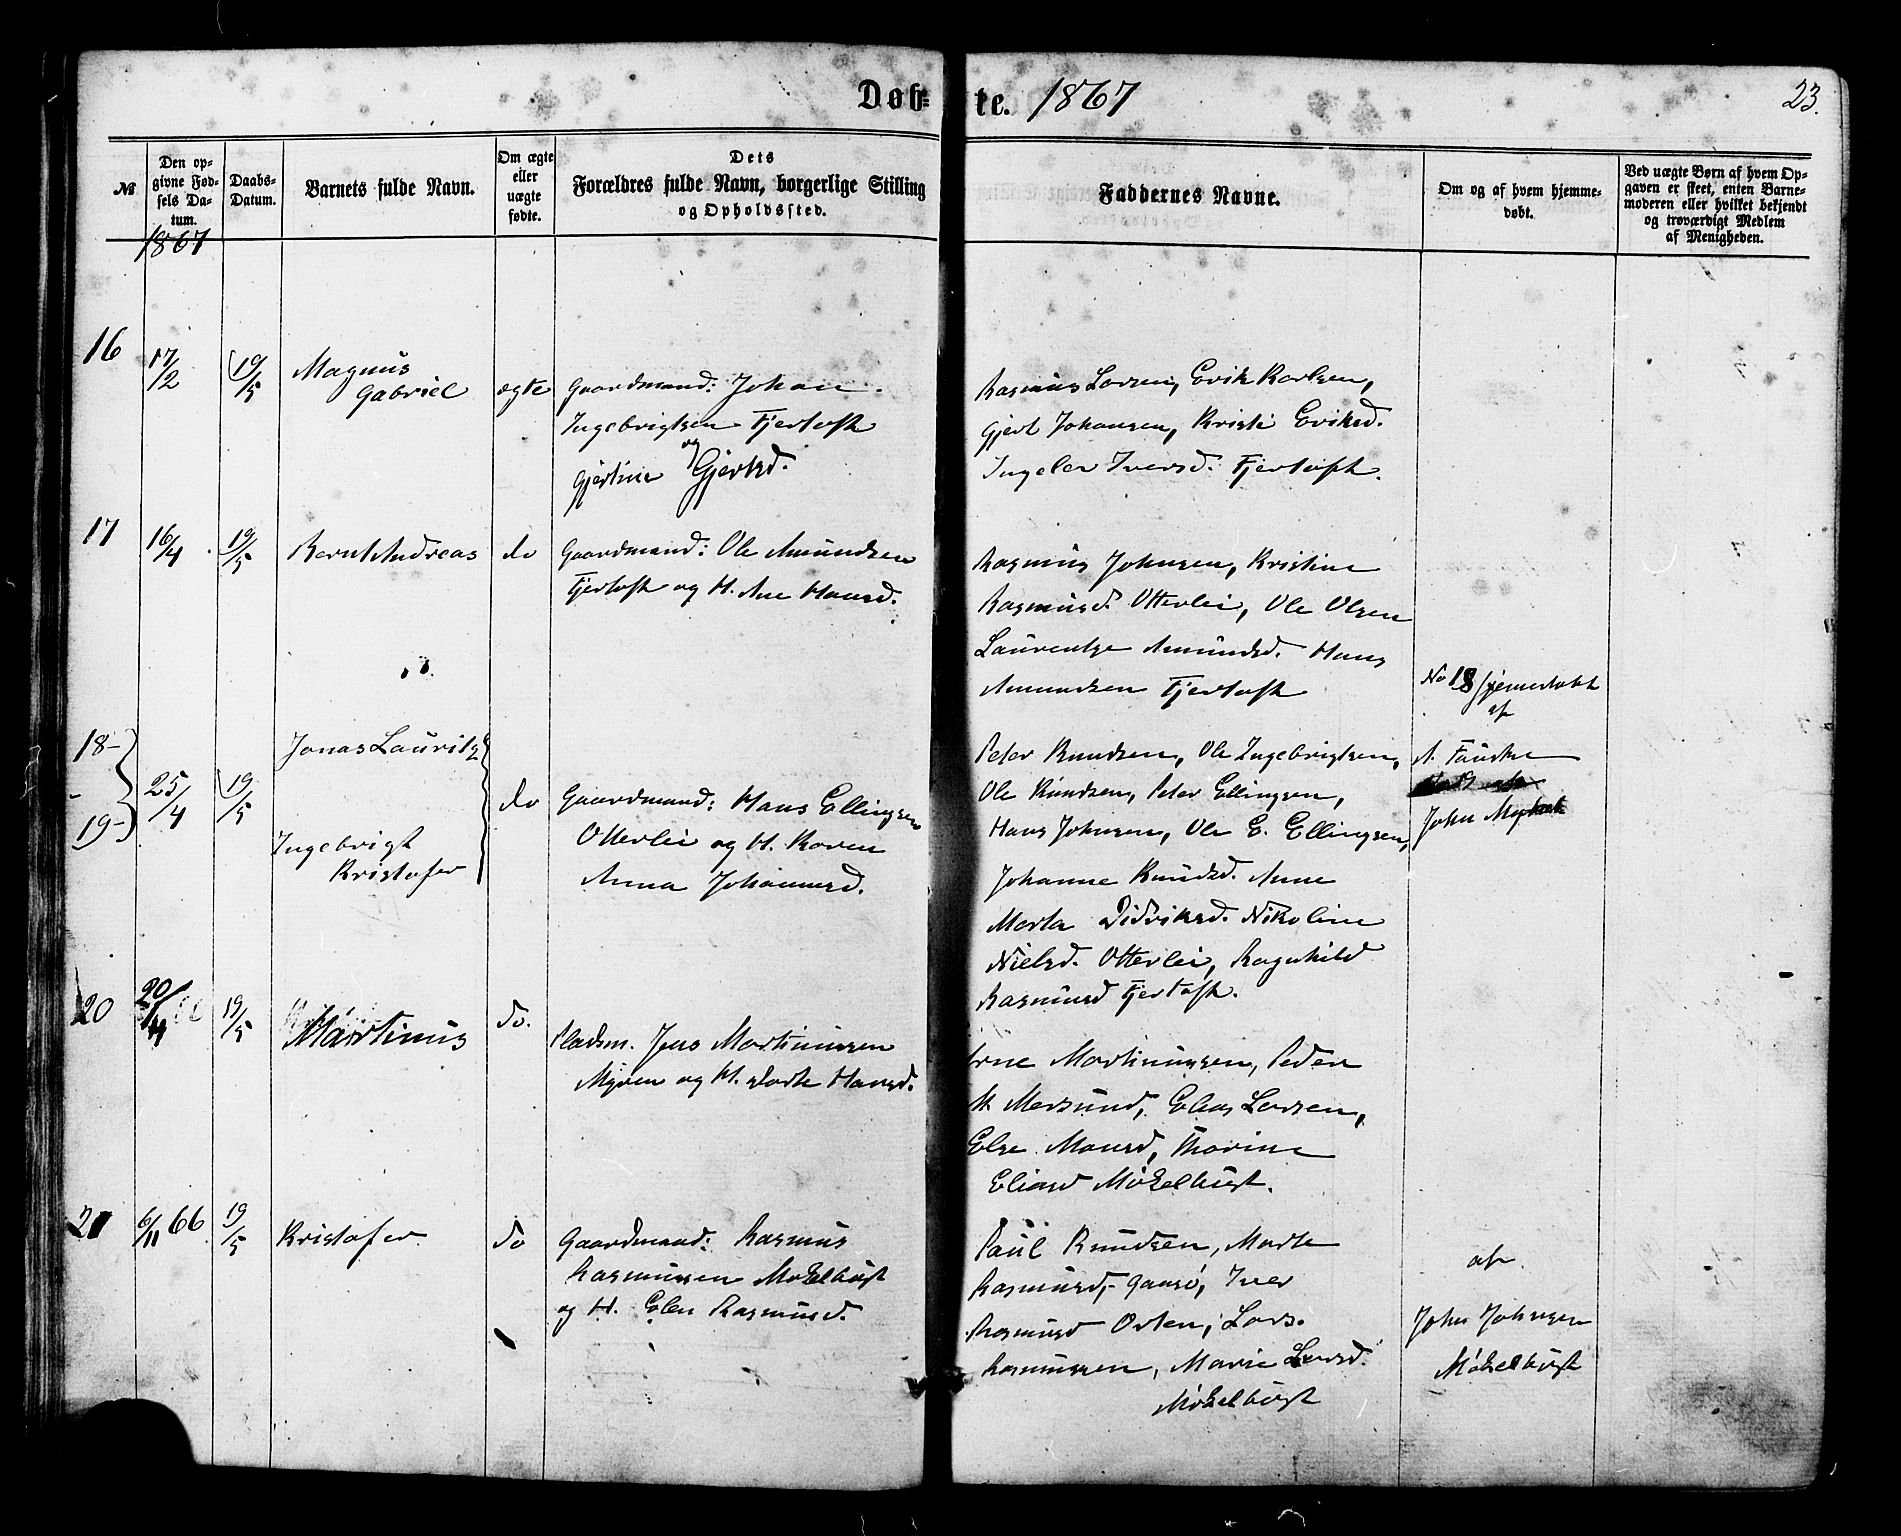 Døb= te. 1867
23.
№
Den op-
givne Fød-
sels Da-
tum.
1867
Daabs-
Datum.
Barnets fulde Navn.
Om ægte
eller
uægte
fødte.
Dets
Forældres fulde Navn, borgerlige Stilling
og Opholdssted.
Faddernes Navne.
Om og af hvem hjemme-
døbt.
Ved uægte Børn af hvem Op-
gaven er skeet, enten Barne-
moderen eller hvilket bekjendt
og troværdigt Medlem
af Menigheden.
16
17/2
19/5
Magnus
Gabriel
ægte
Gaardmand: Johan
Ingebrigtsen Fjertoft
og
Gjertine Gjertsd.
Rasmus Larsen, Erik Karlsen,
Gjert Johansen, Kristi Eriksd.
Ingeler Iversd. Fjertoft.
17
16/4
19/5
Bernt Andreas
do
Gaardmand: Ole Amundsen
Fjertoft og H. Ane Hansd.
Rasmus Johnsen, Kristine
Rasmusd. Otterlei, Ole Olsen
Laurentse Amundsd. Hans
Amundsen Fjertoft
No 18 hjemmedøbt
af
A. Fauske
John
18-
19-
25/4
19/5
Jonas Lauritz
Ingebrigt
Kristofer
do
Gaardmand: Hans Ellingsen
Otterlei og H. Karen
Anna Johannesd.
Peter Knudsen, Ole Ingebrigtsen,
Ole Knudsen, Peter Ellingsen,
Hans Johnsen, Ole E. Ellingsen,
Johanne Knudsd. Anne
Marta Didriksd. Nikoline
Nielsd. Otterlei, Ragnhild
Rasmusd Fjertoft.
20
20/4
19/5
Martinus
do.
Pladsm. Jens Martinussen
Myren og H. Dorte Hansd.
Arne Martinussen, Peder
M. Mersund, Elias Larsen,
Else Monsd, Thorine
Eliasd Mökelbust.
21
6/11 66
19/5
Kristofer
do
Gaardmand: Rasmus
Rasmussen Mökelbust
og H. Elen Rasmusd.
Paul Knudsen, Marte
Rasmusd, Gaasö, Iver
Rasmusd Orten, Lars
Rasmussen, Marie Larsd.
Mökelbust
af
John Johnsen
Mökelbust